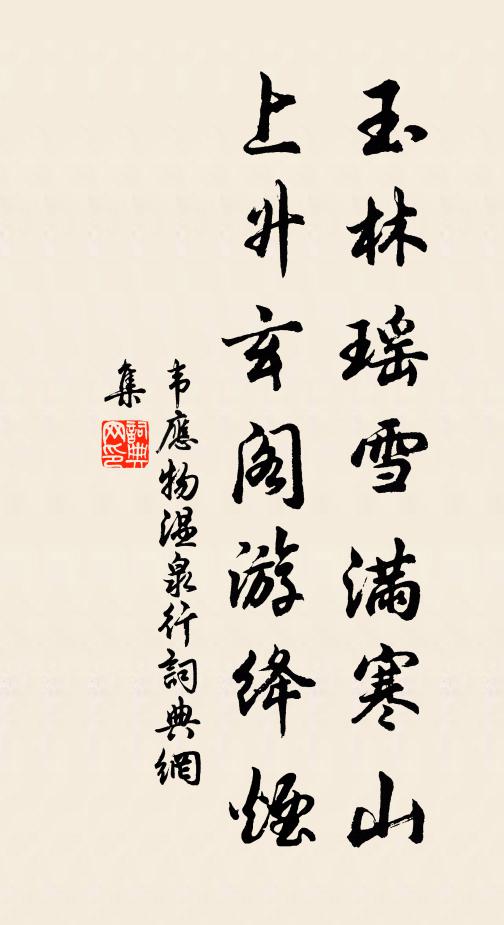 玉林瑶雪满寒山
上升玄阁游绛烟
韦應物温泉行詞典網
集
詞典
网印